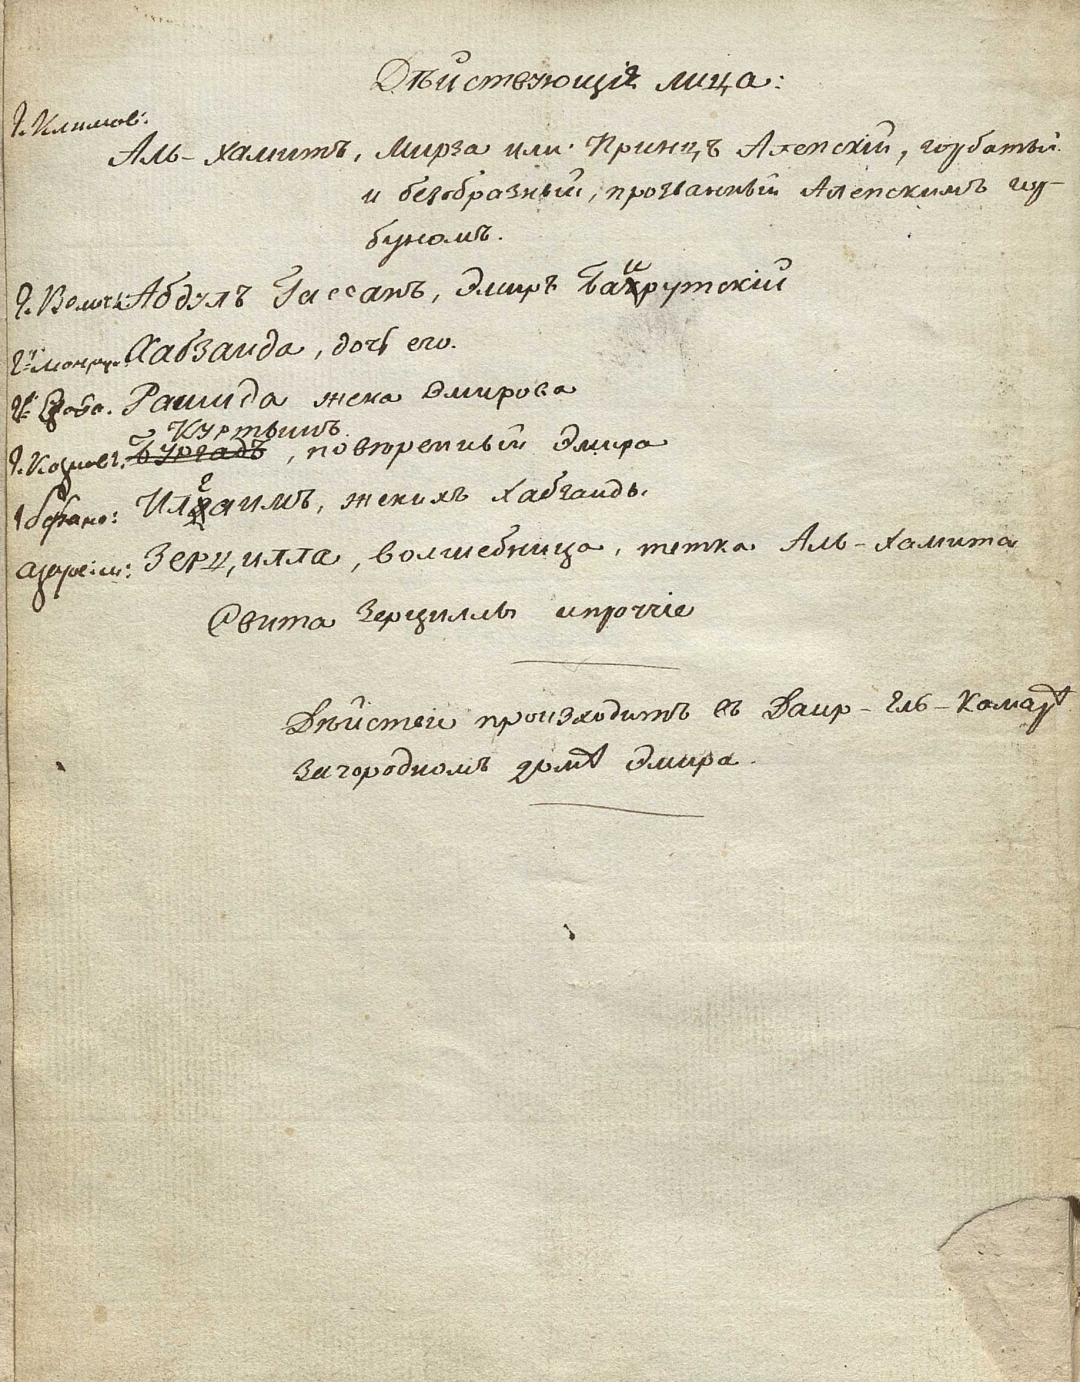 Дѣйствующія лица:
Г. Климов:
Аль-хамитъ, Мирза или Принцъ Алепскій, горбатый
и безобразный, прозванный Алепскимъ гор-
буномъ.
Абдулъ Гассанъ, Эмиръ Байрутскій
Хабзаида, дочь его.
Рашида жена Эмирова
Куртыш
Бургадъ, повѣренный Эмира
женихъ Хабзаиды.
Зерцилла, волшебница, тетка Аль-Хамита
Свита Зерциллы и прочіе
Дѣйствіе происходитъ въ Даир-Эль-Камарѣ
загородномъ домѣ Эмира.